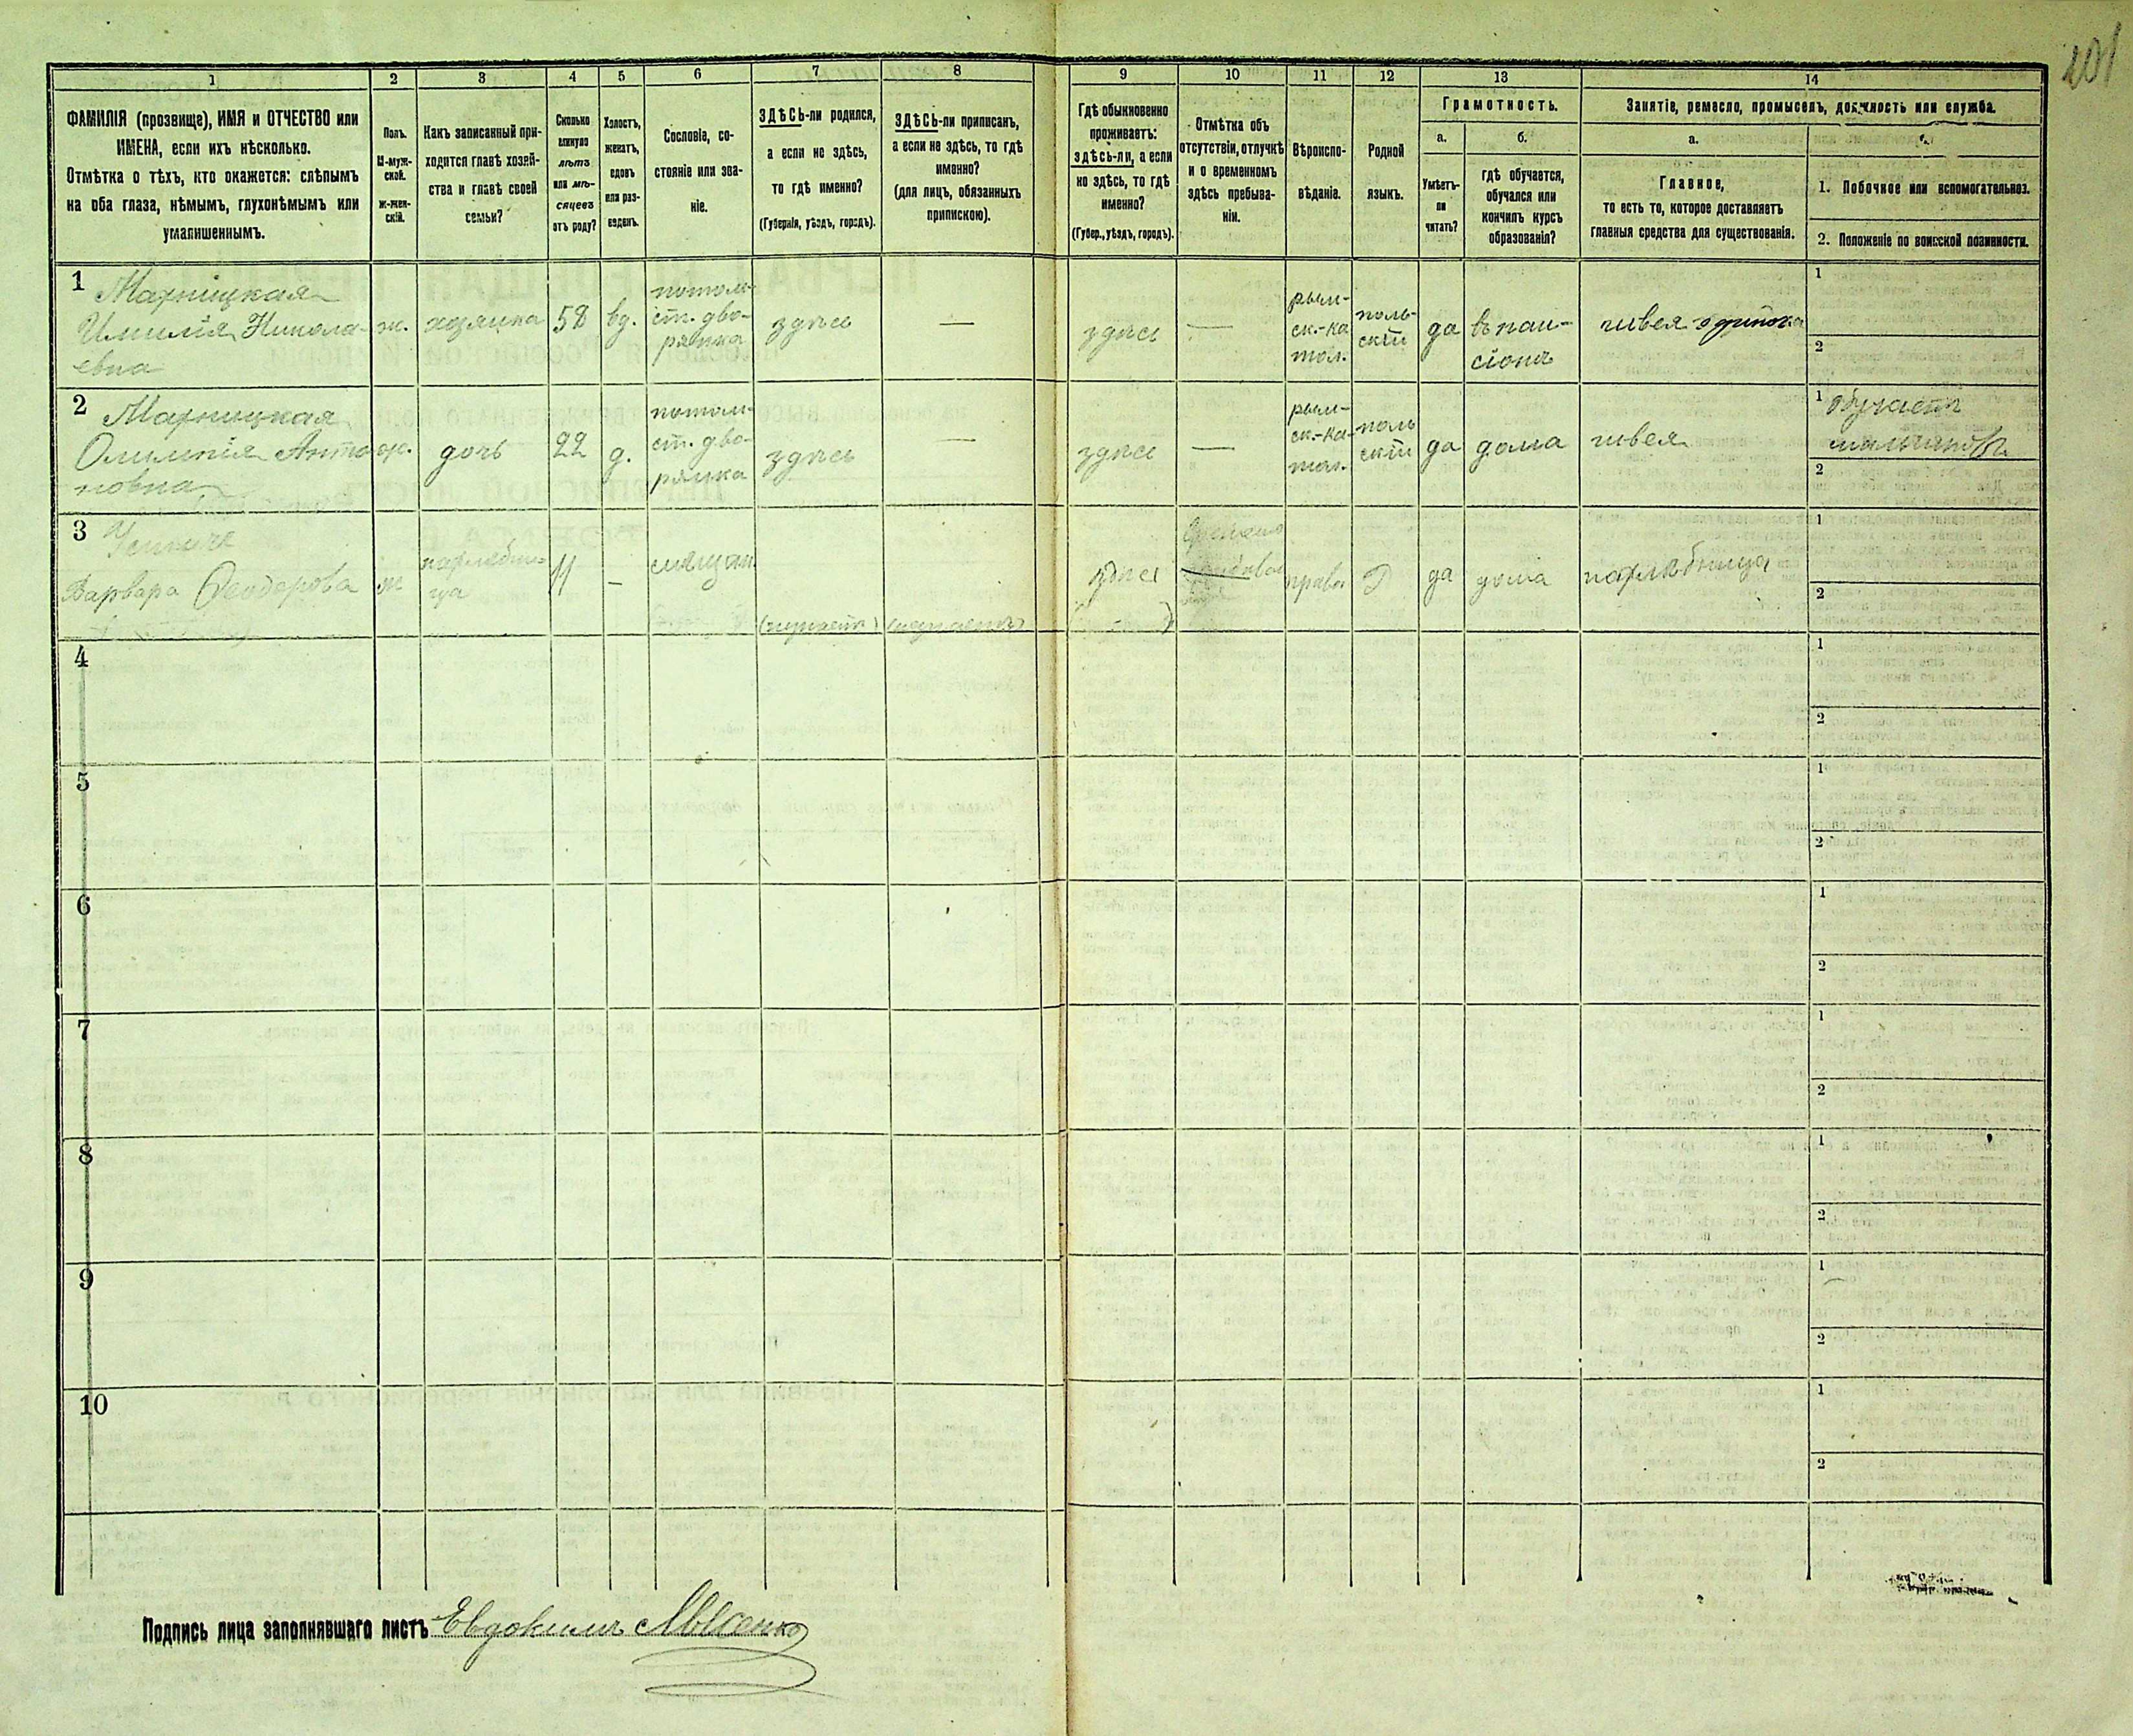 201
1
2
3
4
5
6
7
8
9
10
11
12
13
14
ФАМИЛІЯ (прозвище), ИМЯ и ОТЧЕСТВО или
ИМЕНА, если ихъ нѣсколько.
Отмѣтка о тѣхъ, кто окажется: слѣпымъ
на оба глаза, нѣмымъ, глухонѣмымъ или
умалишеннымъ.
Полъ.
М-муж-
ской.
ж-жен-
скій.
Какъ записанный при-
ходится главѣ хозяй-
ства и главѣ своей
семьи?
Сколько
минуло
лѣтъ
или мѣ-
сяцевъ
отъ роду?
Холостъ,
женатъ,
вдовъ
или раз-
веденъ.
Сословіе, со-
стояніе или зва-
ніе.
ЗДѢСЬ-ли родился,
а если не здѣсь,
то гдѣ именно?
(Губернія, уѣздъ, городъ).
ЗДѢСЬ-ли приписанъ,
а если не здѣсь, то гдѣ
именно?
(для лицъ, обязанныхъ
припискою).
Гдѣ обыкновенно
проживаетъ:
здѣсь-ли, а если
не здѣсь, то гдѣ
именно?
(Губер., уѣздъ, городъ).
Отмѣтка объ
отсутствіи, отлучкѣ
и о временномъ
здѣсь пребыва-
ніи.
Вѣроиспо-
вѣданіе.
Родной
языкъ.
Грамотность.
а.
Умѣетъ-
ли
читать?
б.
гдѣ обучается,
обучался или
кончилъ курсъ
образованія?
Занятіе, ремесло, промыселъ, должность или служба.
а.
Главное,
то есть то, которое доставляетъ
главныя средства для существованія.
1. Побочное или вспомогательное.
2. Положеніе по воинской повинности.
1
Имилія Никола-
евна
ж.
хозяйка
58
вд.
потом-
ст. дво-
рянка
здѣсь
—
здѣсь
—
рим-
ск.-ка
тол.
поль-
скій
да
въ пан-
сіонѣ
швея
1
2
2
Олимпія Анто
новна
ж.
дочь
22
д.
потом-
ст. дво-
рянка
здѣсь
—
здѣсь
—
рим-
ск.-ка-
тол.
поль
скій
да
дома
швея
1 обучаетъ
2
3
Варвара
ж
нахлѣбни-
ца
11
–
здѣсь
право
да
дома
нахлѣбница
1
2
4
1
2
5
1
2
6
1
2
7
1
2
8
1
2
9
1
2
10
1
2
Подпись лица заполнявшаго листъ Евдокимъ